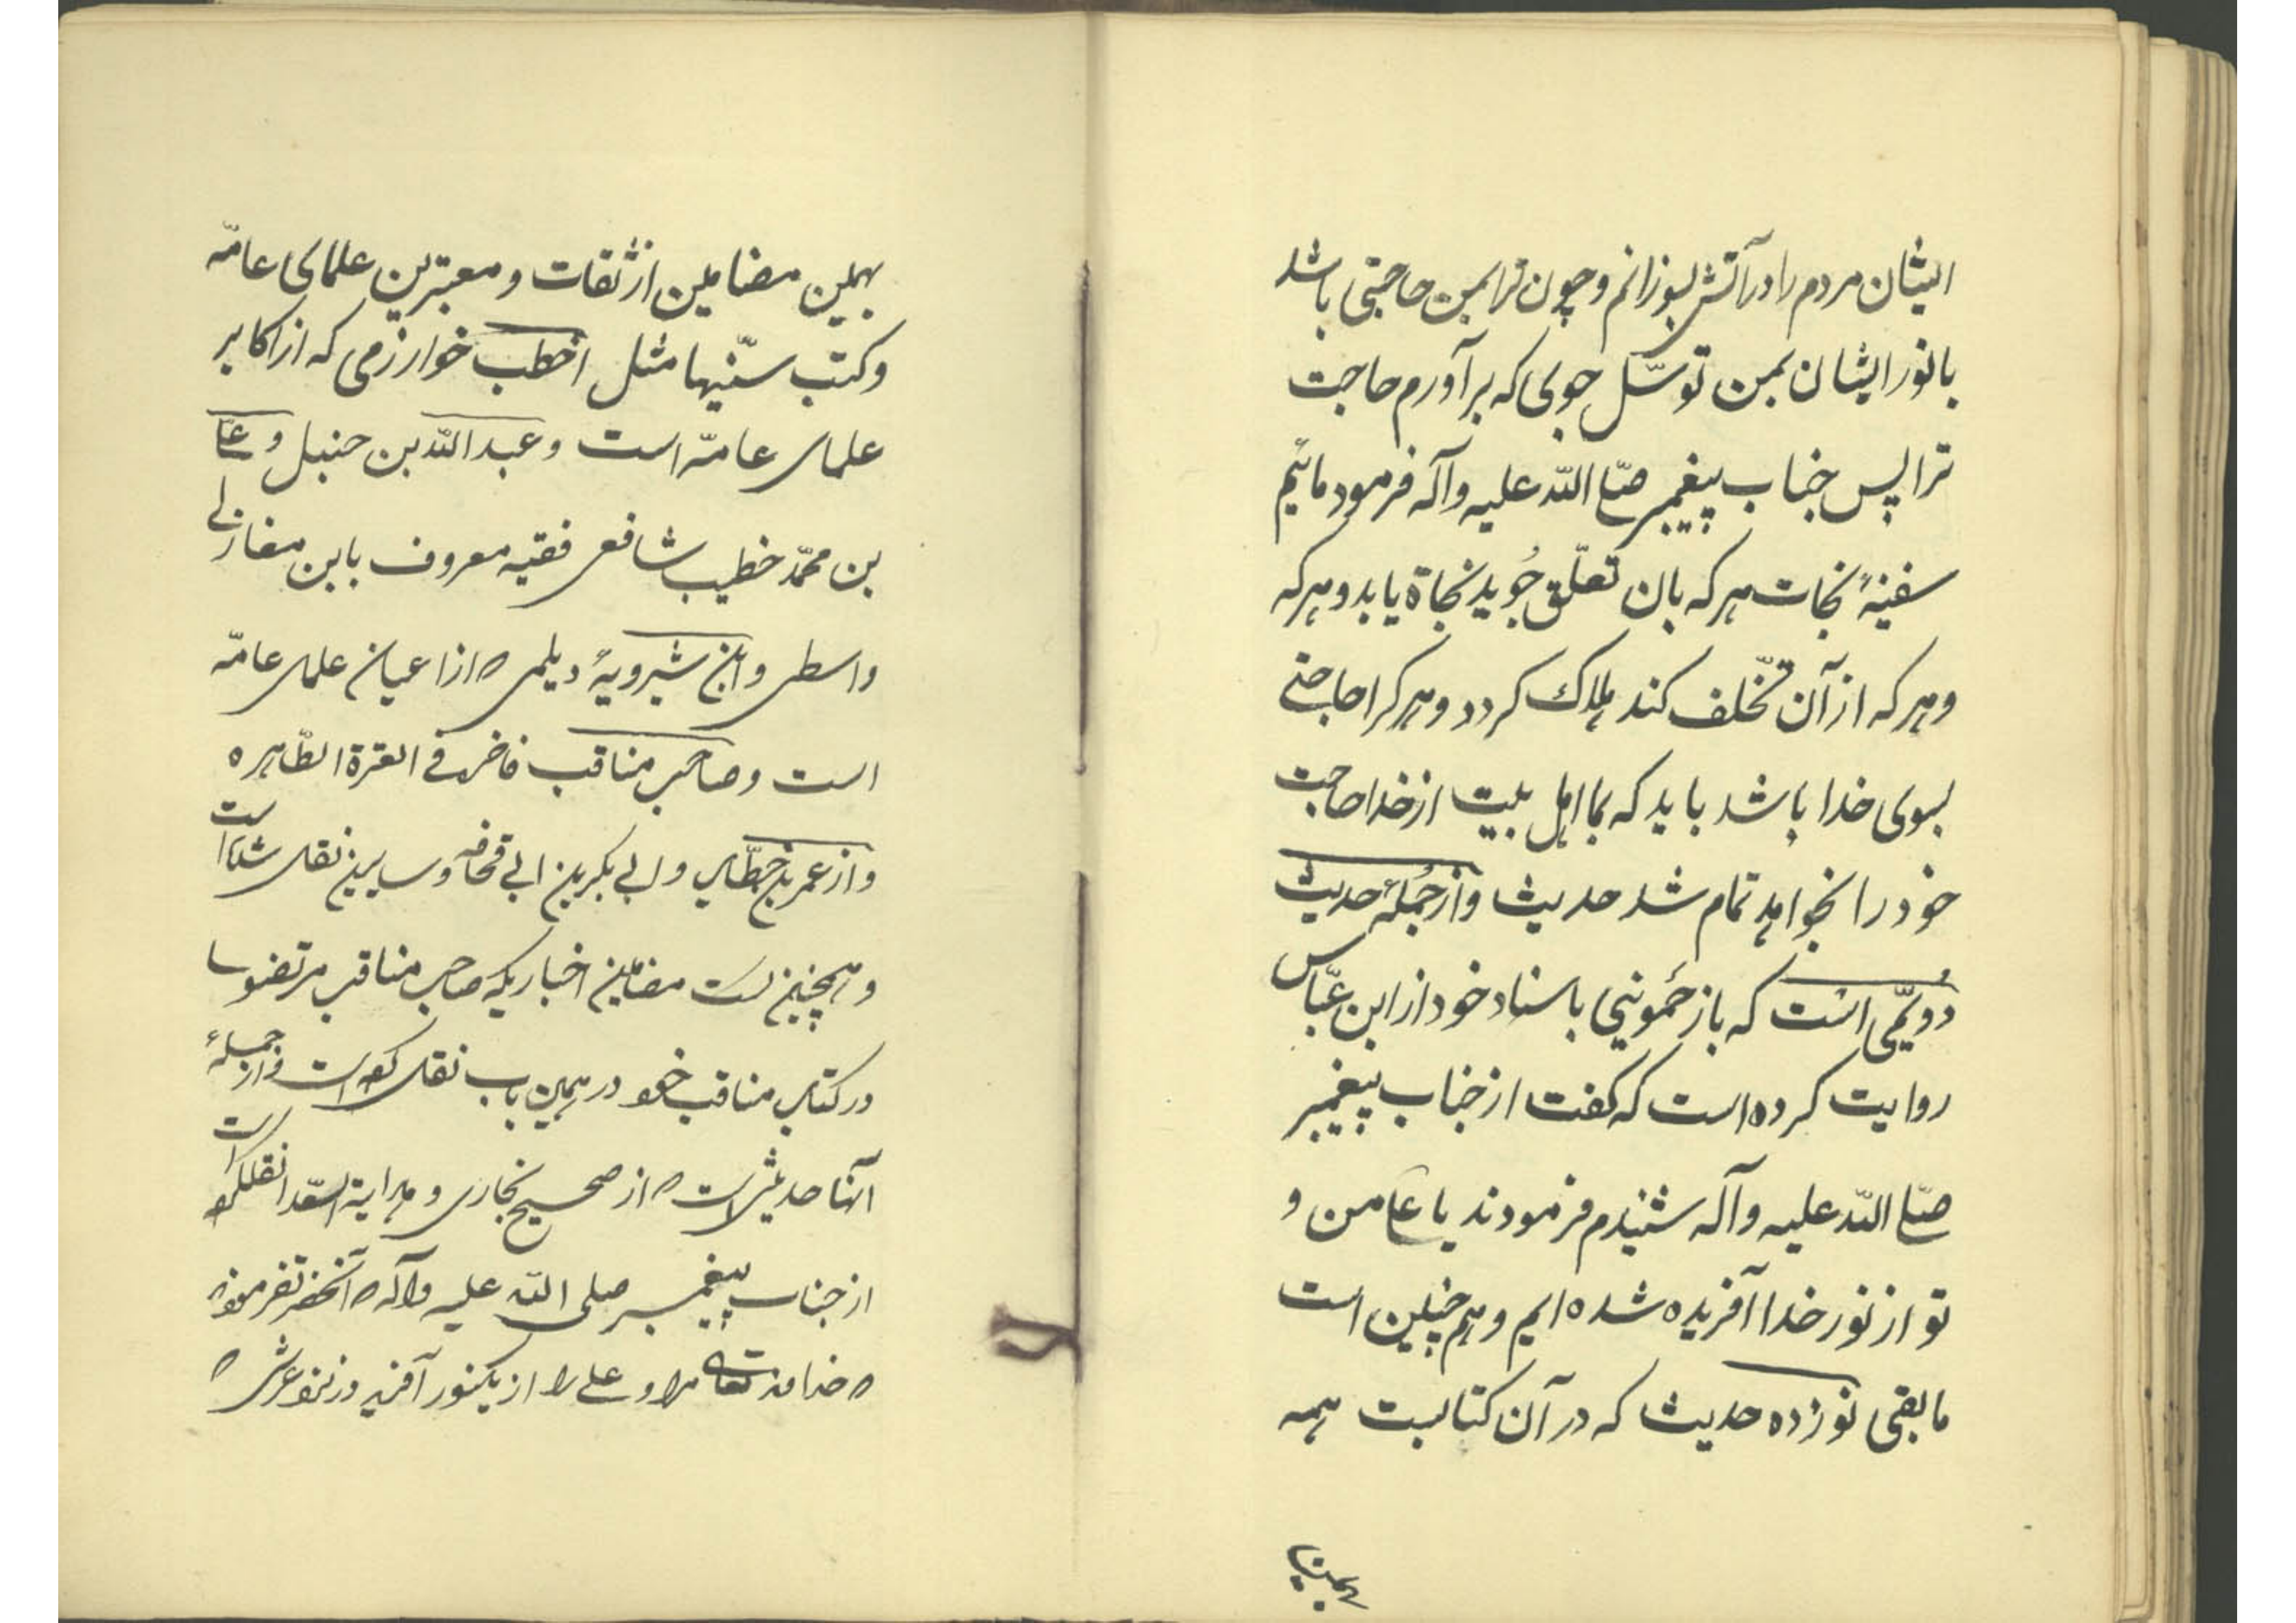 ایشان مردم را در آتش بسوزانم و چون ترا بمن حاجتی باشد
با نور ایشان بمن توسّل جوی که برآورم حاجت
ترا پس جناب پیغمبر صلّی اللّه علیه وآله فرمود مائیم
سفینهٔ نجات هرکه بان تعلّق جُوید نجاة یابد و هرکه
و هرکه از آن تخّلف کند هلاک کردد و هرکرا حاجتی
بسوی خدا باشد باید که بما اهل بیت از خدا حاجت
خود را بخواهد تمام شد حدیث و از جُملهٔ حدیث
دُویّمی است که باز حَموینی باسناد خود از ابن عبّاس
روایت کرده است که کفت از جناب پیغمبر
صلّی اللّه علیه وآله شنیدم فرمودند یا علی من و
تو از نور خدا آفریده شده ایم و هم چنین است
مابقی نوزده حدیث که در آن کتابست همه
بهمین
بهمین مضامین از ثقات و معتبرین علمای عامّه
و کتب سنّیها مثل اخطب خوارزمی که از اکابر
علمای عامّه است و عبداللّه بن حنبل و علی
بن محمّد خطیب شافعی فقیه معروف بابن مغازلی
واسطی و ابن شیرویهٔ دیلمی که از اعیان علمای عامّه
است و صاحب مناقب فاخره فی العترة الطّاهره
و از عمر بن خطّاب و ابی بکر بن ابی قحافه و سایرین نقل شده است
و همچنین است مضامین اخباریکه صاحب مناقب مرتضوی
در کتاب مناقب خود در همین باب نقل کرده است و از جملهٔ
آنها حدیثی است که از صحیح بخاری و هدایة السّعدا نقل کرده است
از جناب پیغمبر صلی اللّه علیه وآله که آنحضرت فرموده
که خداوند تعالی مرا و علی را از یکنور آفرید در نزد عرش که